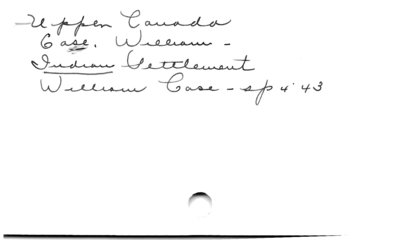 Upper Canada
Case, William -
Indian Settlement
William Case - sp 4' 43